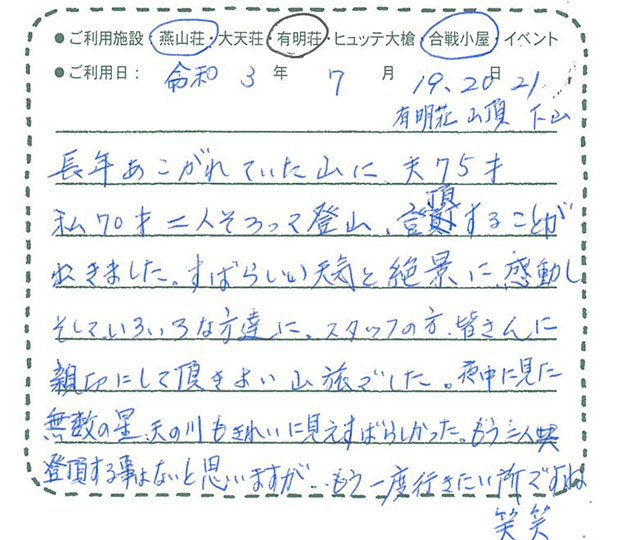 ●ご利用施設：燕山荘・大天荘・有明荘・ヒュッテ大槍・合戦小屋・イベント
●ご利用日：令和3年7月19、20日21
有明荘 山頂 下山
長年あこがれていた山に 夫75才
私70才二人そろって登山、登頂することが
出きました。すばらしい天気と絶景に、感動し
そしていろいろな方達に、スタッフの方、皆さんに
親切にして頂きよい山旅でした。夜中に見た
無数の星、天の川もきれいに見えすばらしかった。もう二人共
登頂する事はないと思いますが、もう一度行きたい所ですね
笑笑